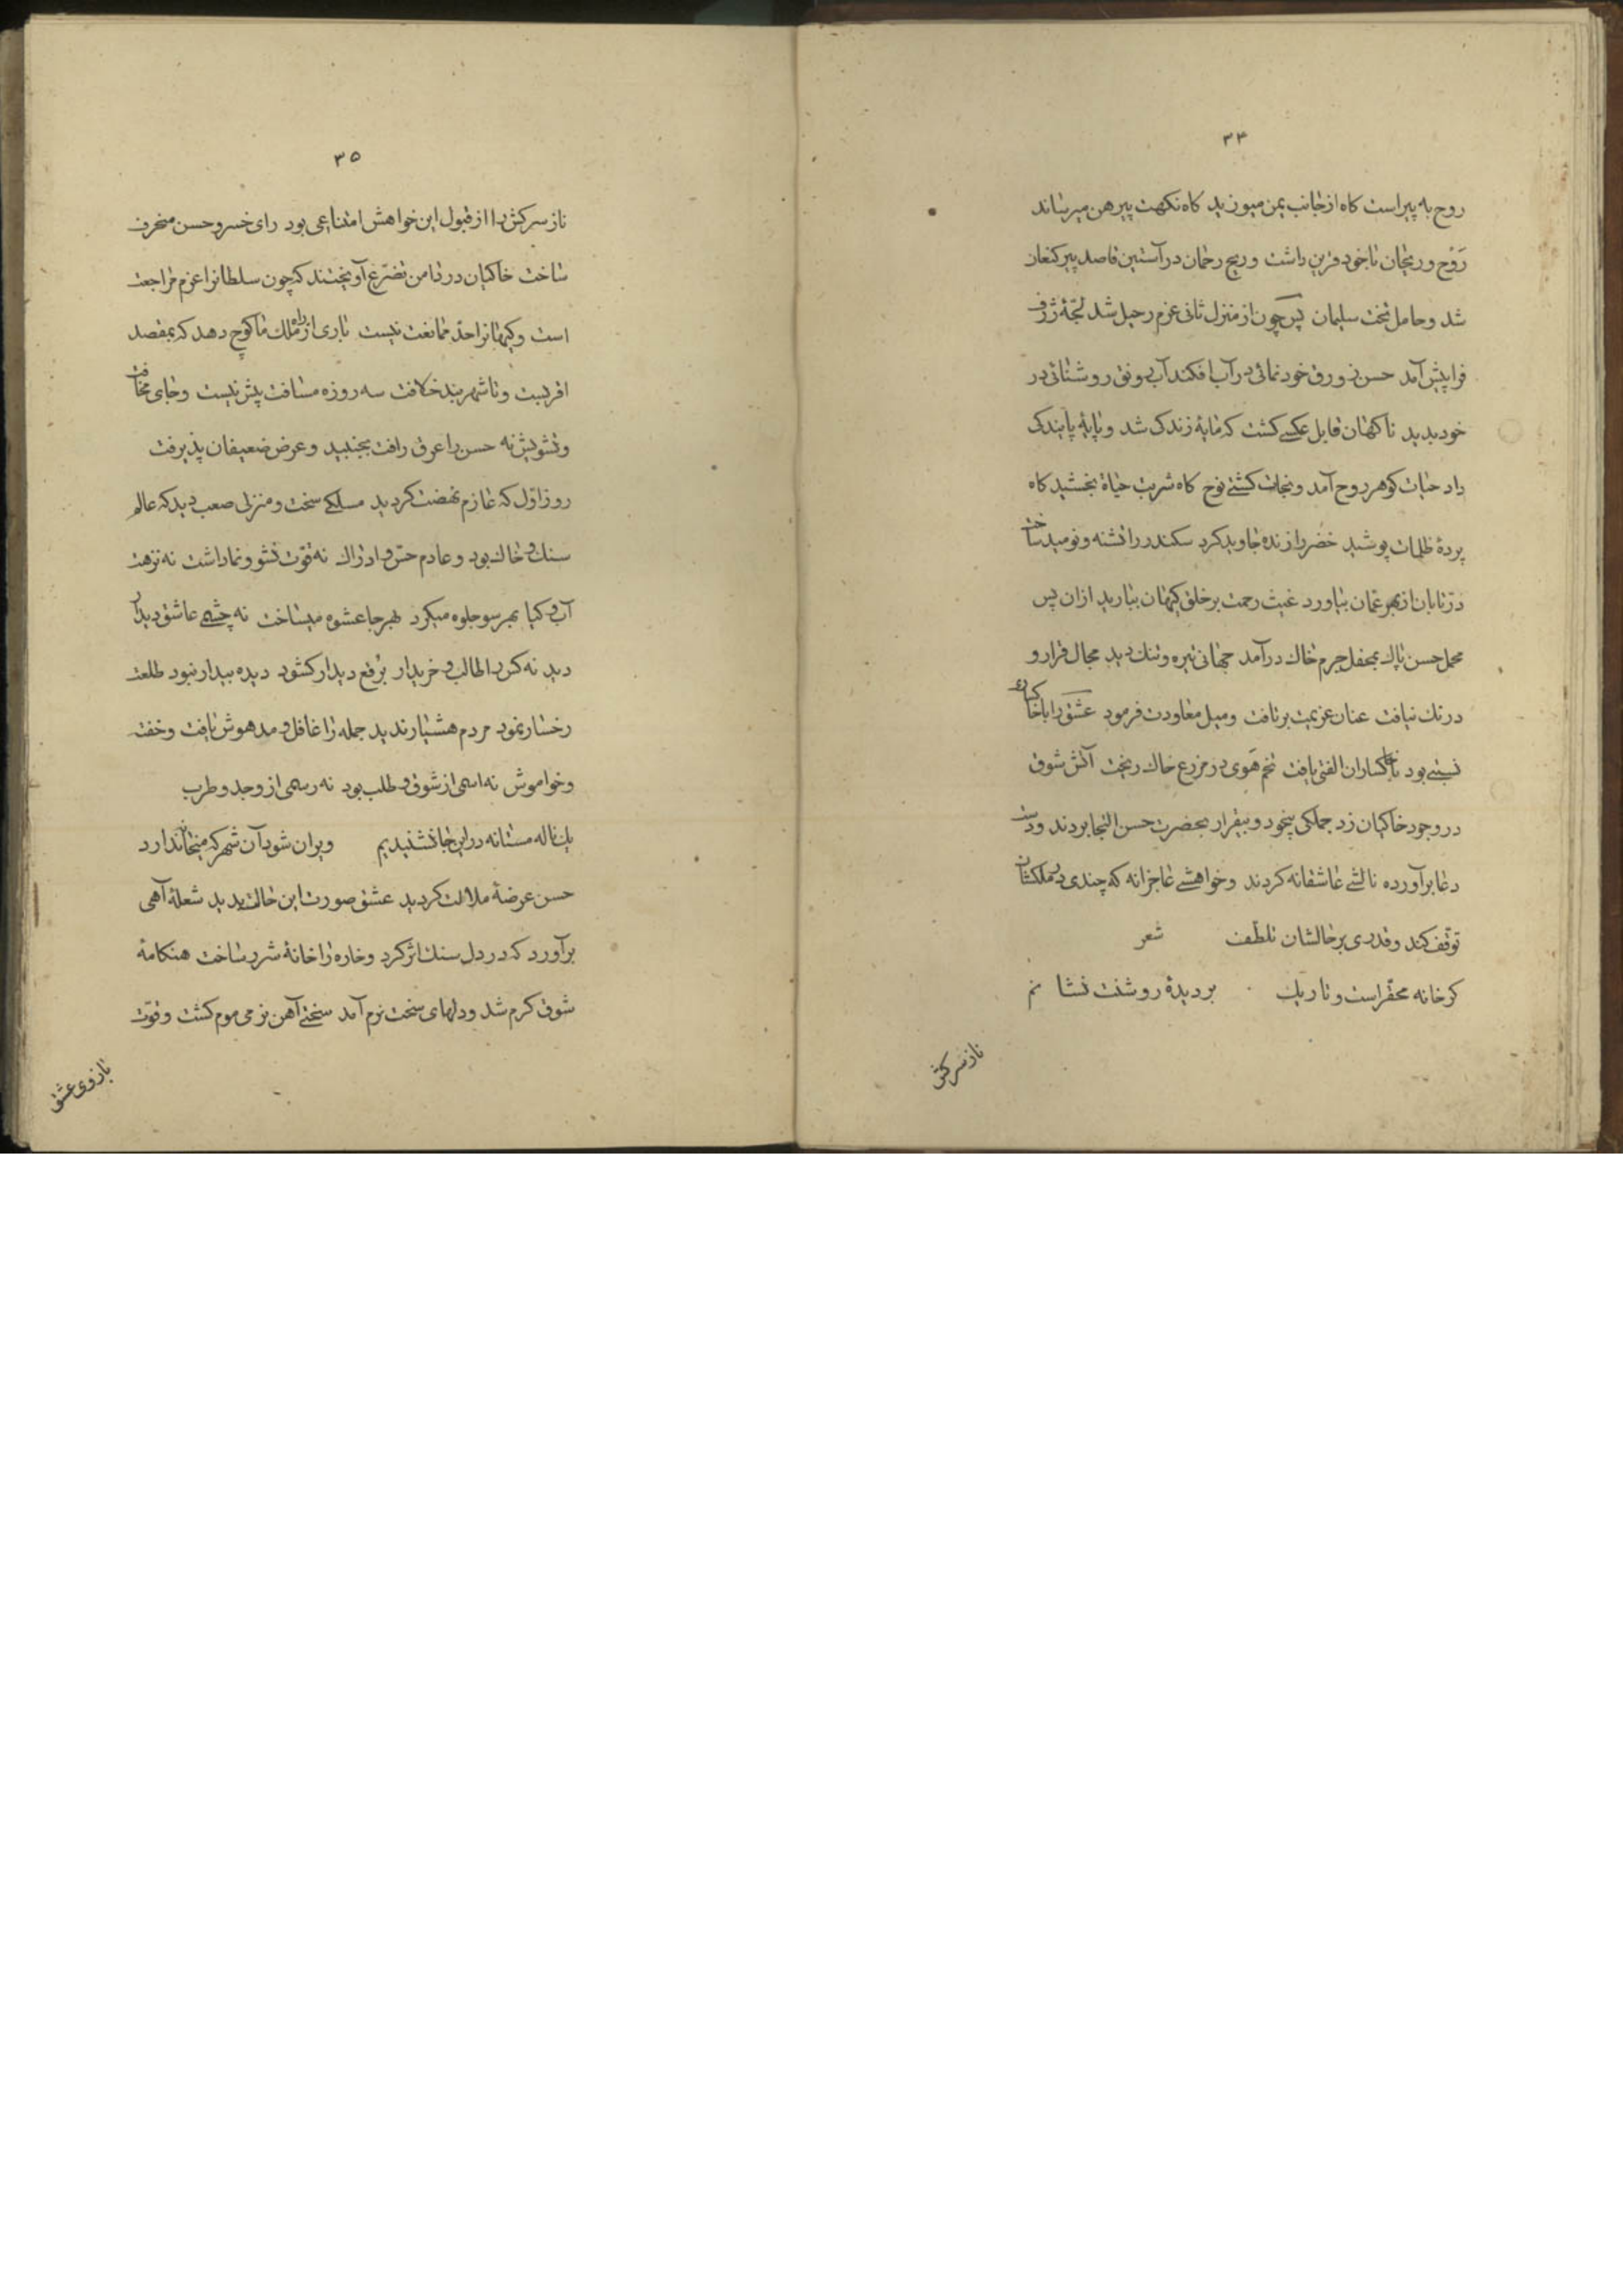 ۳۴
روح به پیراست کاه از جانب یمن میوزید کاه نکهت پیرهن میرساند
رَوْح و ریحان با خود قرین داشت و ریح رحمان در آستین قاصد پیر کنعان
شد و حامل تخت سلیمان پس چون از منزل ثانی عزم رحیل شد لجّهٔ ژرف
فرا پیش آمد حسن زورق خودنمائی در آب افکند آب رونق روشنائی در
خود بدید ناکهان قابل عکسی کشت که مایهٔ زندکی شد و پایهٔ پایندکی
داد حیات کوهر روح آمد و نجات کشتی نوح کاه شربت حیاة بخشید کاه
پردهٔ ظلمات پوشید خضر را زنده جاوید کرد سکندر را تشنه و نومید ساخت
درّ تابان از بهر عمّان بیاورد غیث رحمت بر خلق کیهان ببارید از ان پس
محمل حسن پاک بمحفل جرم خاک درآمد جهانی تیره و تنک دید مجال قرار و
درنک نیافت عنان عزیمت برتافت و میل معاودت فرمود عشق را با خاکیان
نسبتی بود با خاکساران الفتی یافت تخم هَوی در مزرع خاک ریخت آتش شوق
در وجود خاکیان زد جملکی بیخود و بیقرار بحضرت حسن التجا بردند و دست
دعا برآورده نالشی عاشقانه کردند و خواهشی عاجزانه که چندی در ملکشان
توقّف کند و قدری بر حالشان تلطّف شعر
کر خانه محقّر است و تاریک بر دیدهٔ روشنت نشانم
ناز سرکش
۳۵
ناز سرکش را از قبول این خواهش امتناعی بود رای خسرو حسن منحرف
ساخت خاکیان در دامن تضرّع آویختند که چون سلطانرا عزم مراجعت
است و کیهانرا حدّ ممانعت نیست باری از راه ملک ما کوچ دهد که بمقصد
اقربست و تا شهر بند خلافت سه روزه مسافت پیش نیست و جای مخافت
و تشویش نه حسن را عرق رافت بجنبید و عرض ضعیفان پذیرفت
روز اوّل که عازم نهضت کردید مسلکی سخت و منزلی صعب دید که عالم
سنک و خاک بود و عادم حسّ و ادراک نه قوّت نشو و نما داشت نه نزهت
آب و کیا بهر سو جلوه میکرد بهر جا عشوه میساخت نه چشمی عاشق دیدار
دید نه کس را طالب و خریدار برقع دیدار کشود دیده بیدار نبود طلعت
رخسار نمود مردم هشیار ندید جمله را غافل و مدهوش یافت و خفت
و خواموش نه اسمی از شوق و طلب بود نه رسمی از وجد و طرب
یک ناله مستانه در این جا نشنیدیم ویران شود آن شهر که میخانه ندارد
حسن عرضهٔ ملالت کردید عشق صورت این حالت بدید شعلهٔ آهی
برآورد که در دل سنک اثر کرد و خاره را خانهٔ شرر ساخت هنکامهٔ
شوق کرم شد و دلهای سخت نرم آمد سختی آهن نرمی موم کشت و قوّت
بازوی عشق